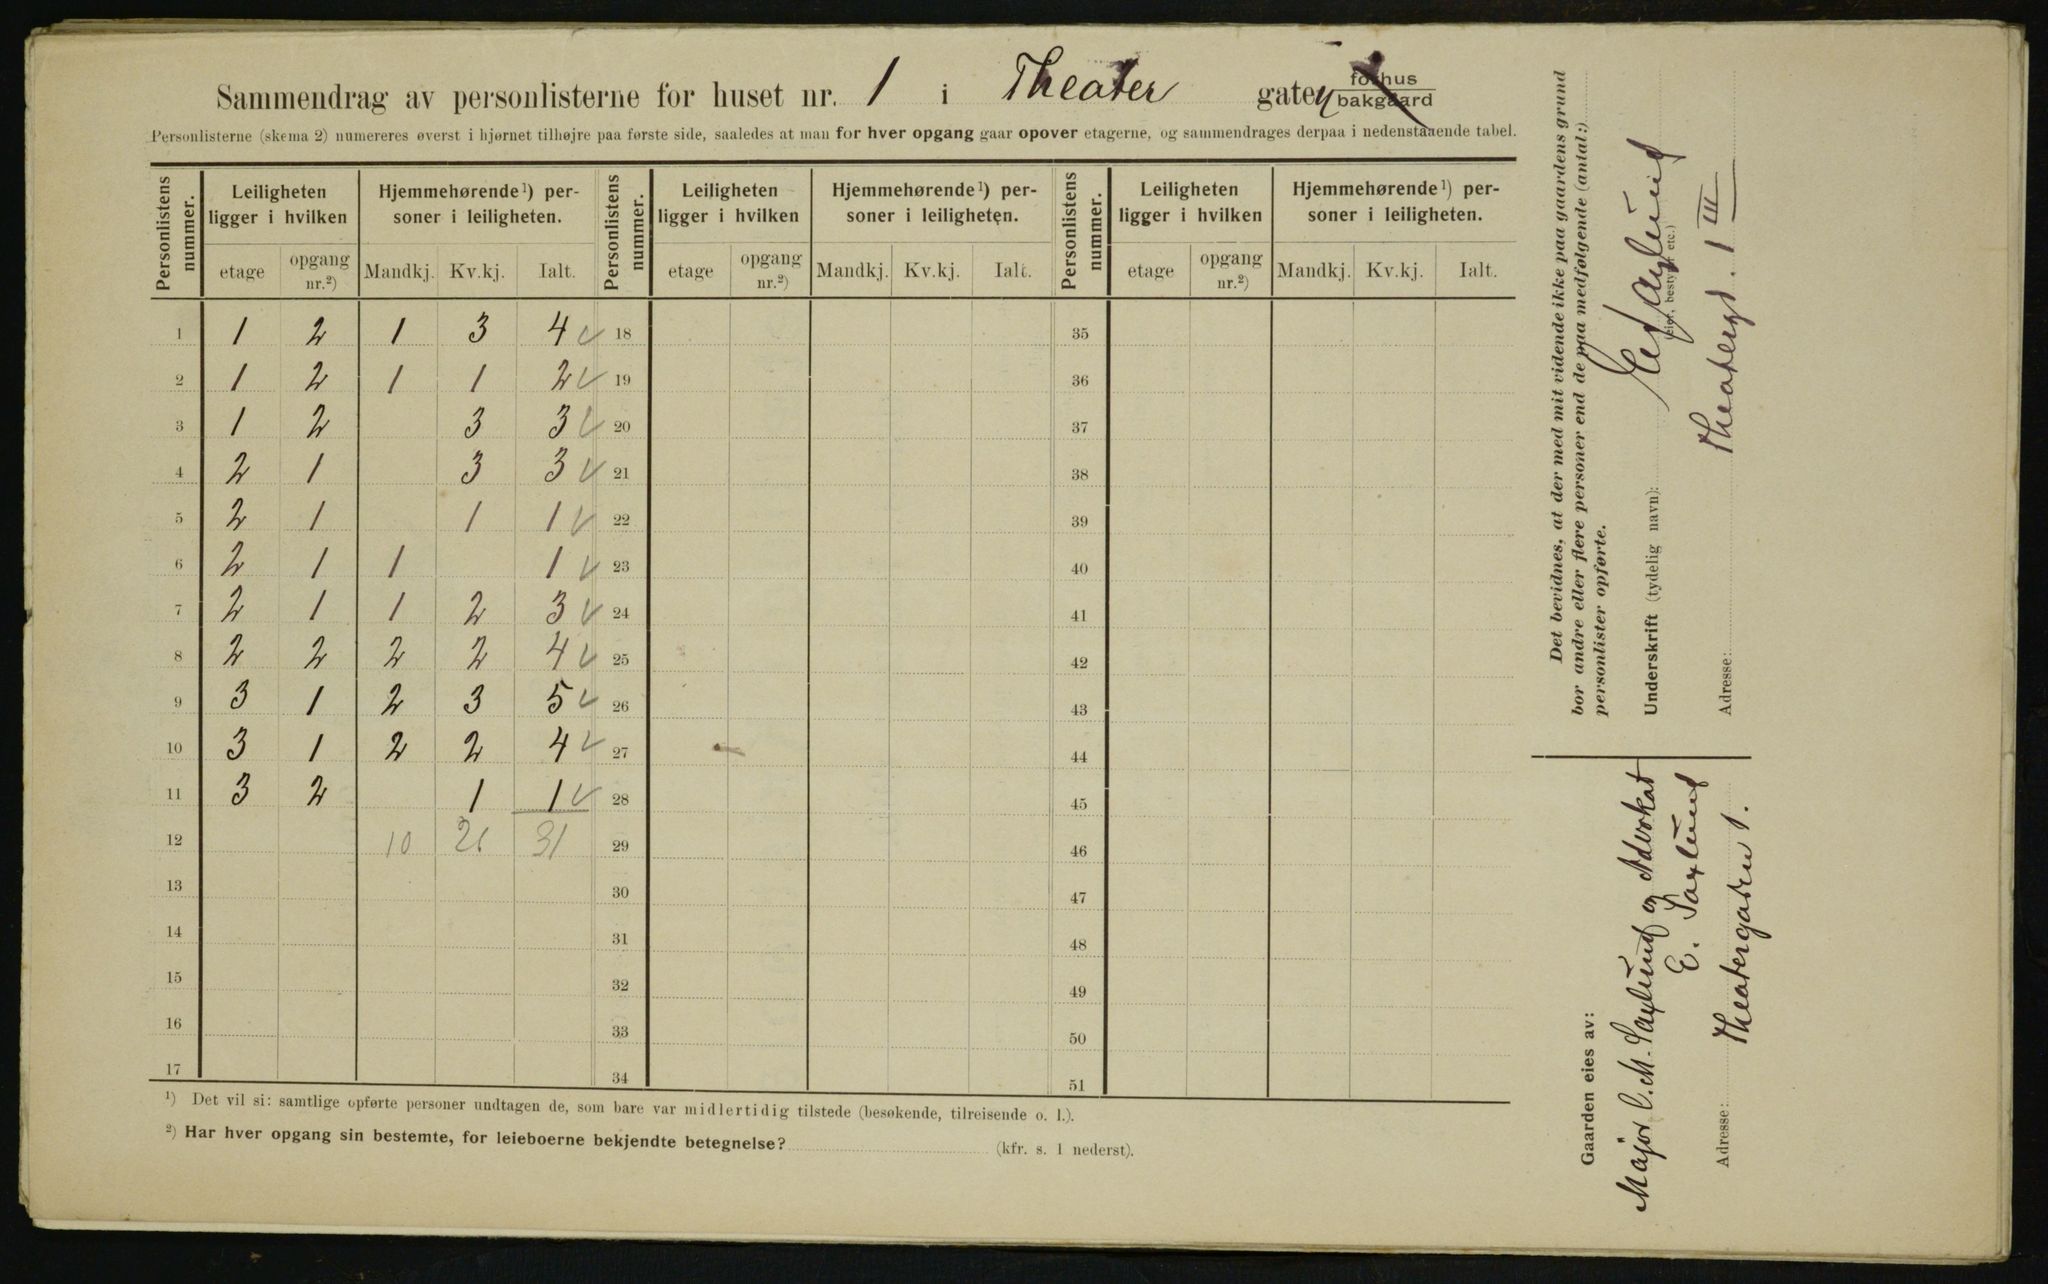 Sammendrag av personlisterne for huset nr. 1 i Theater gaten forhus bakgaard
Personlisterne (skema 2) numereres øverst i hjørnet tilhøjre paa første side, saaledes at man for hver opgang gaar opover etagerne, og sammendrages derpaa i nedenstaaende tabel.
Personlistens nummer. Leiligheten ligger i hvilken Hjemmehørende¹) personer i leiligheten. Personlistens nummer. Leiligheten ligger i hvilken Hjemmehørende¹) personer i leiligheten. Personlistens nummer. Leiligheten ligger i hvilken Hjemmehørende¹) personer i leiligheten.
etage opgang nr.²) Mandkj. Kv.kj. Ialt. etage opgang nr.²) Mandkj. Kv.kj. Ialt. etage opgang nr.²) Mandkj. Kv.kj. Ialt.
1 1 2 1 3 4 ✓ 18 35
2 1 2 1 1 2 ✓ 19 36
3 1 2 3 3 ✓ 20 37
4 2 1 3 3 ✓ 21 38
5 2 1 1 1 ✓ 22 39
6 2 1 1 1 ✓ 23 40
7 2 1 1 2 3 ✓ 24 41
8 2 2 2 2 4 ✓ 25 42
9 3 1 2 3 5 ✓ 26 43
10 3 1 2 2 4 ✓ 27 44
11 3 2 1 1 ✓ 28 45
12 10 21 31 29 46
13 30 47
14 31 48
15 32 49
16 33 50
17 34 51
¹) Det vil si: samtlige opførte personer undtagen de, som bare var midlertidig tilstede (besøkende, tilreisende o. l.).
²) Har hver opgang sin bestemte, for leieboerne bekjendte betegnelse? (kfr. s. 1 nederst).
Det bevidnes, at der med mit vidende ikke paa gaardens grund
bor andre eller flere personer end de paa medfølgende (antal:)
personlister opførte.
Underskrift (tydelig navn): Saxlund
(eier, bestyrer etc.)
Adresse: Theatergt. 1 III
Gaarden eies av:
Major C. M. Saxlund og Advokat
E. Saxlund
Adresse: Theatergaten 1.